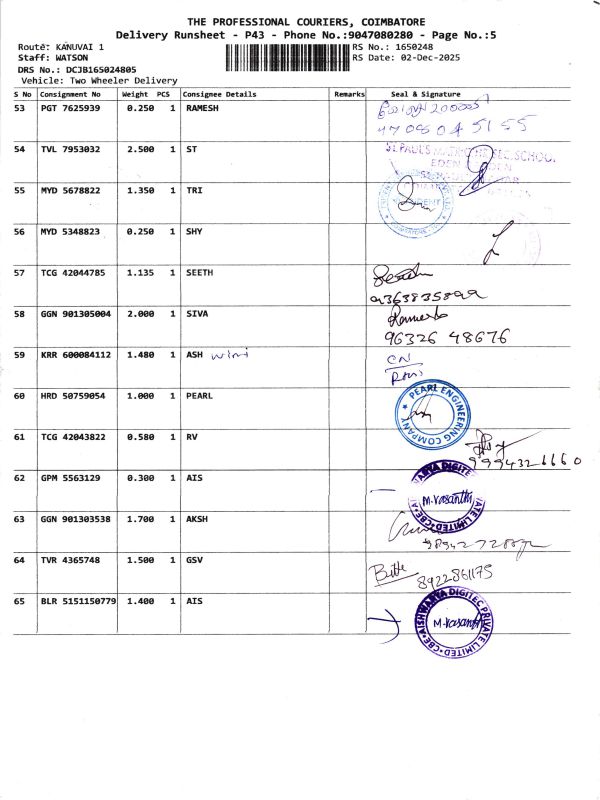 THE PROFESSIONAL COURIERS, COIMBATORE
Delivery Runsheet - P43 - Phone No.:9047080280 - Page No.:5
Route: KANUVAI 1
RS No.: 1650248
Staff: WATSON
RS Date: 02-Dec-2025
DRS No.: DCJB165024805
Vehicle: Two Wheeler Delivery
S No Consignment No Weight PCS Consignee Details Remarks Seal & Signature
53 PGT 7625939 0.250 1 RAMESH
54 TVL 7953032 2.500 1 ST
55 MYD 5678822 1.350 1 TRI
56 MYD 5348823 0.250 1 SHY
57 TCG 42044785 1.135 1 SEETH
58 GGN 901305004 2.000 1 SIVA
96326 48676
59 KRR 600084112 1.480 1 ASH
60 HRD 50759054 1.000 1 PEARL
PEARL ENGINEERING COMPANY
61 TCG 42043822 0.580 1 RV
9994326660
62 GPM 5563129 0.300 1 AIS
M.Vasanthi
63 GGN 901303538 1.700 1 AKSH
64 TVR 4365748 1.500 1 GSV
8922861175
65 BLR 5151150779 1.400 1 AIS
AISHWARYA DIGITEC PRIVATE LIMITED-CBE
M.Vasanthi